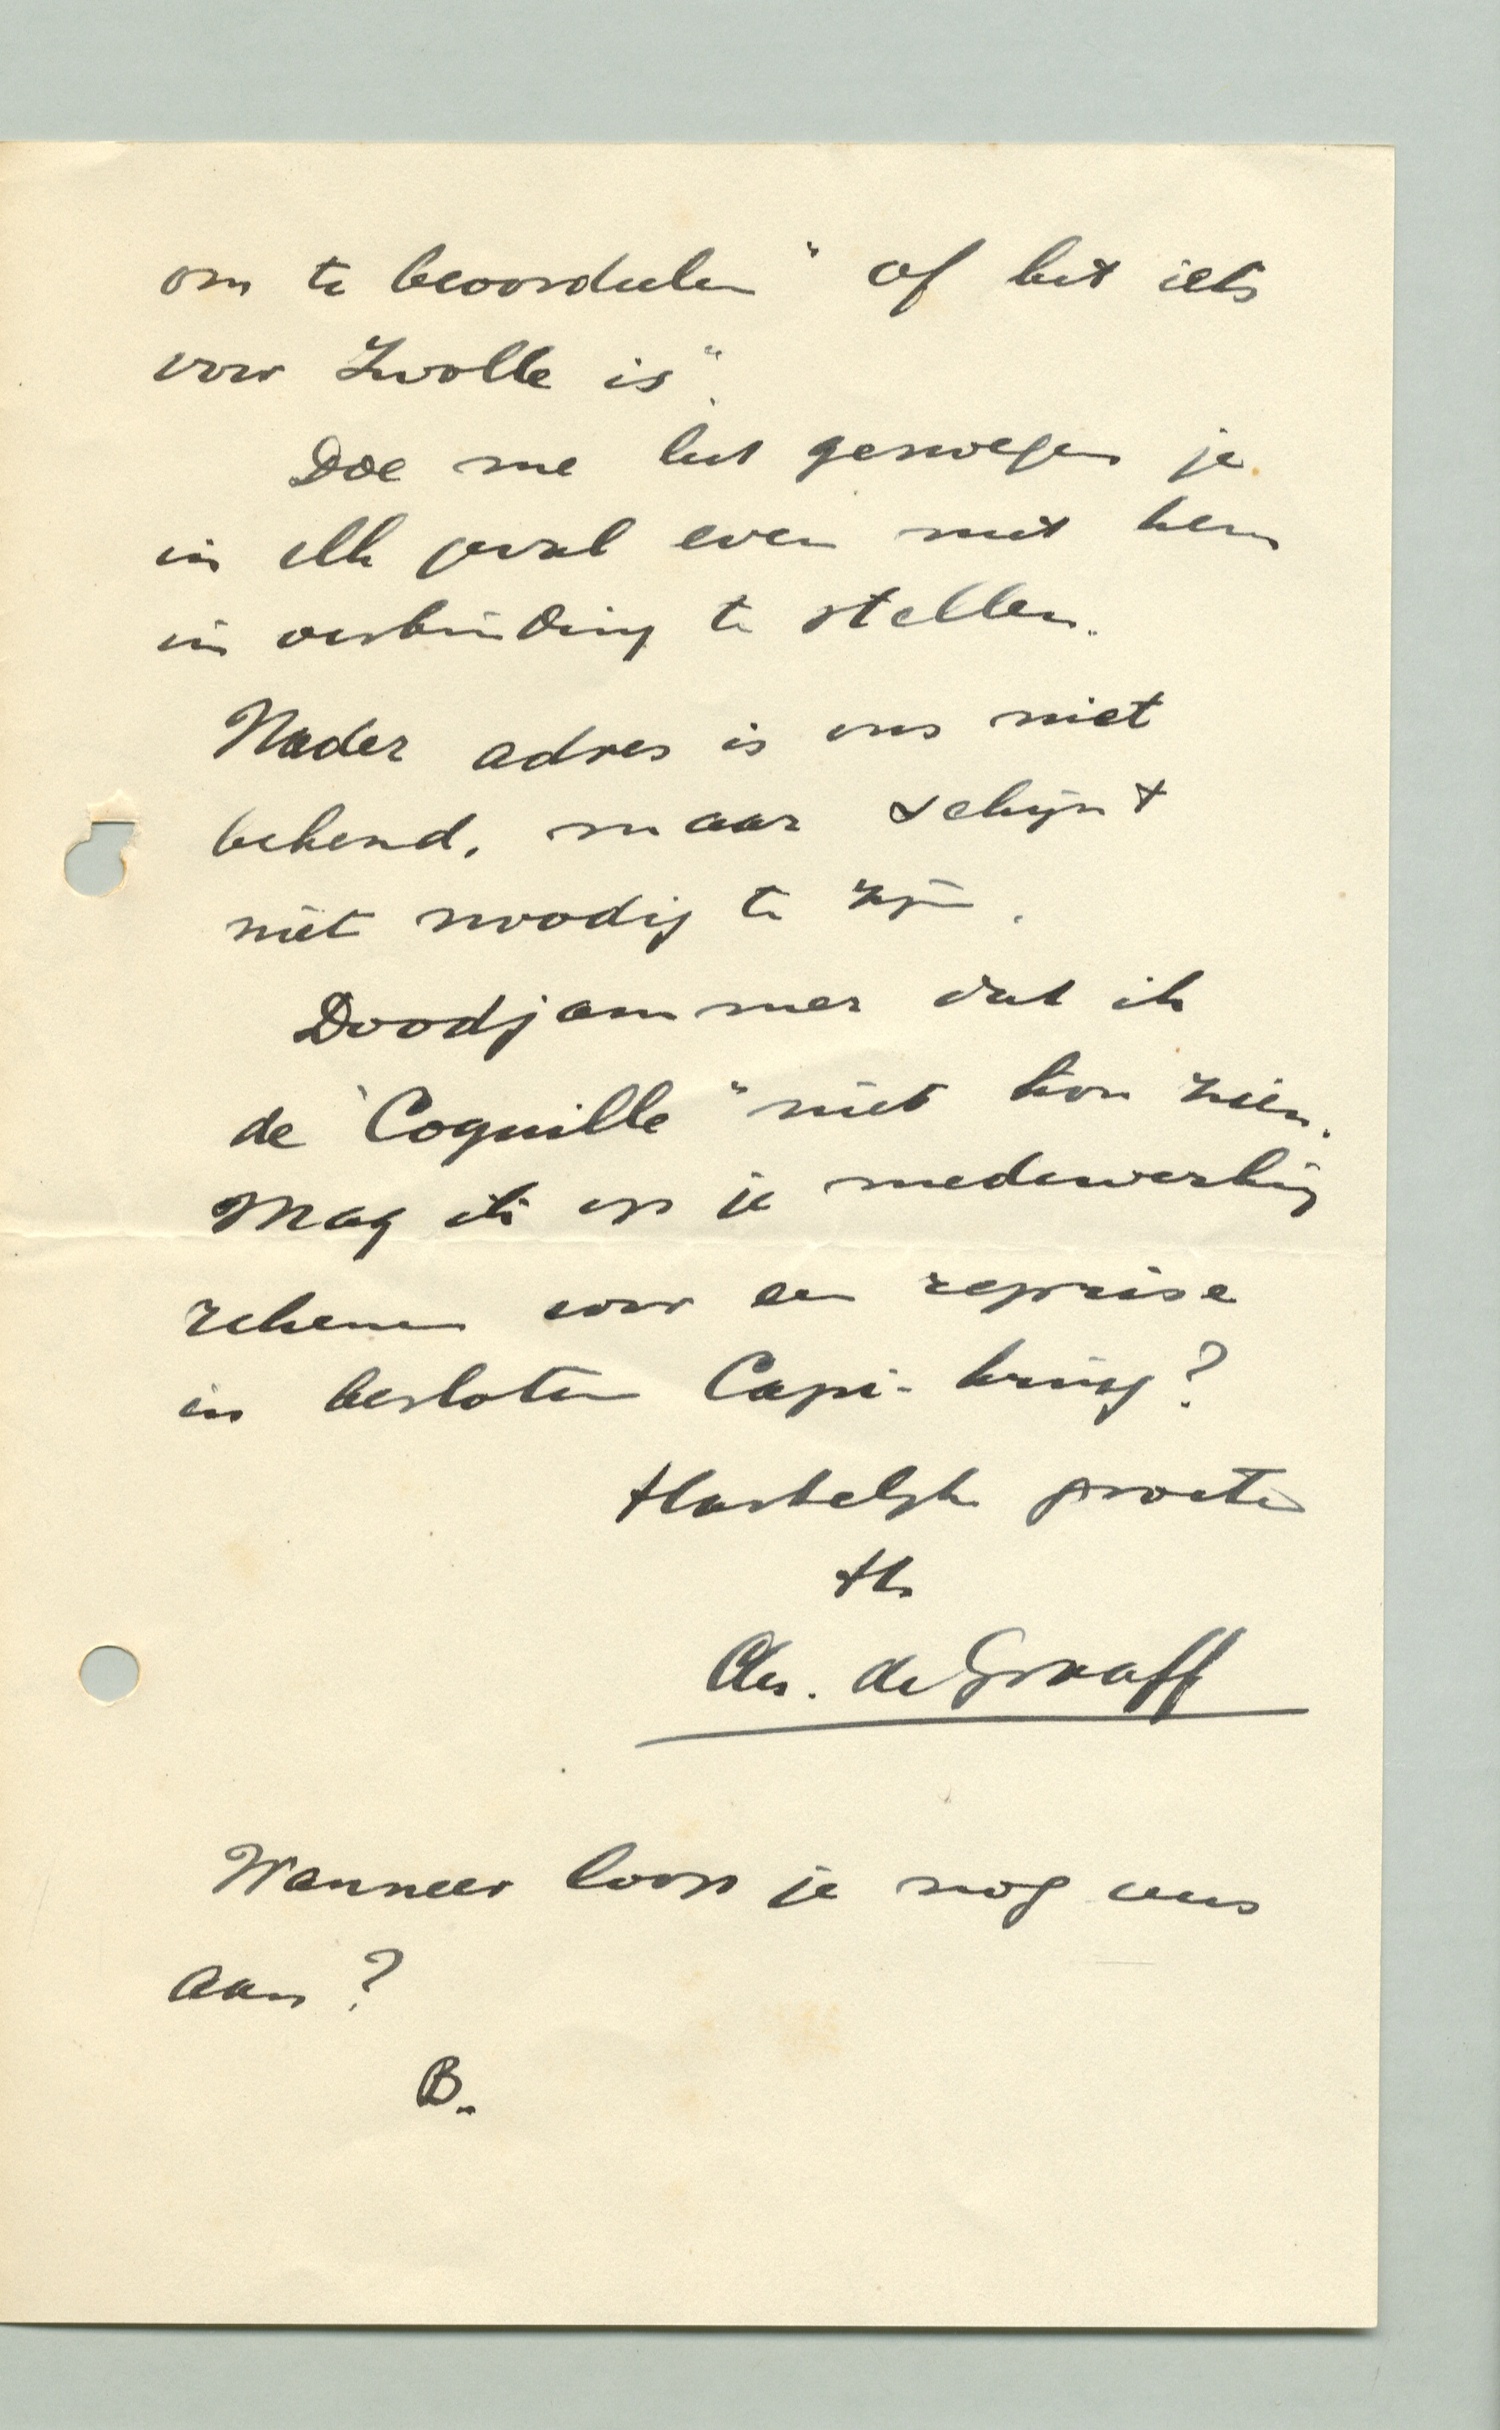 om te beoordeelen "of het iets
voor Zwolle is".
Doe me het genoegen je
in elk geval even met hem
in verbinding te stellen.
Nader adres is ons niet
bekend, maar schijnt
niet noodig te zijn.
Doodjammer dat ik
de "Coquille" niet kon zien.
Mag ik op je medewerking
rekenen voor een reprise
in besloten Capi-kring?
Hartelijke groeten
tt.
Chs. de Graaff
Wanneer loop je nog eens
aan?
B.